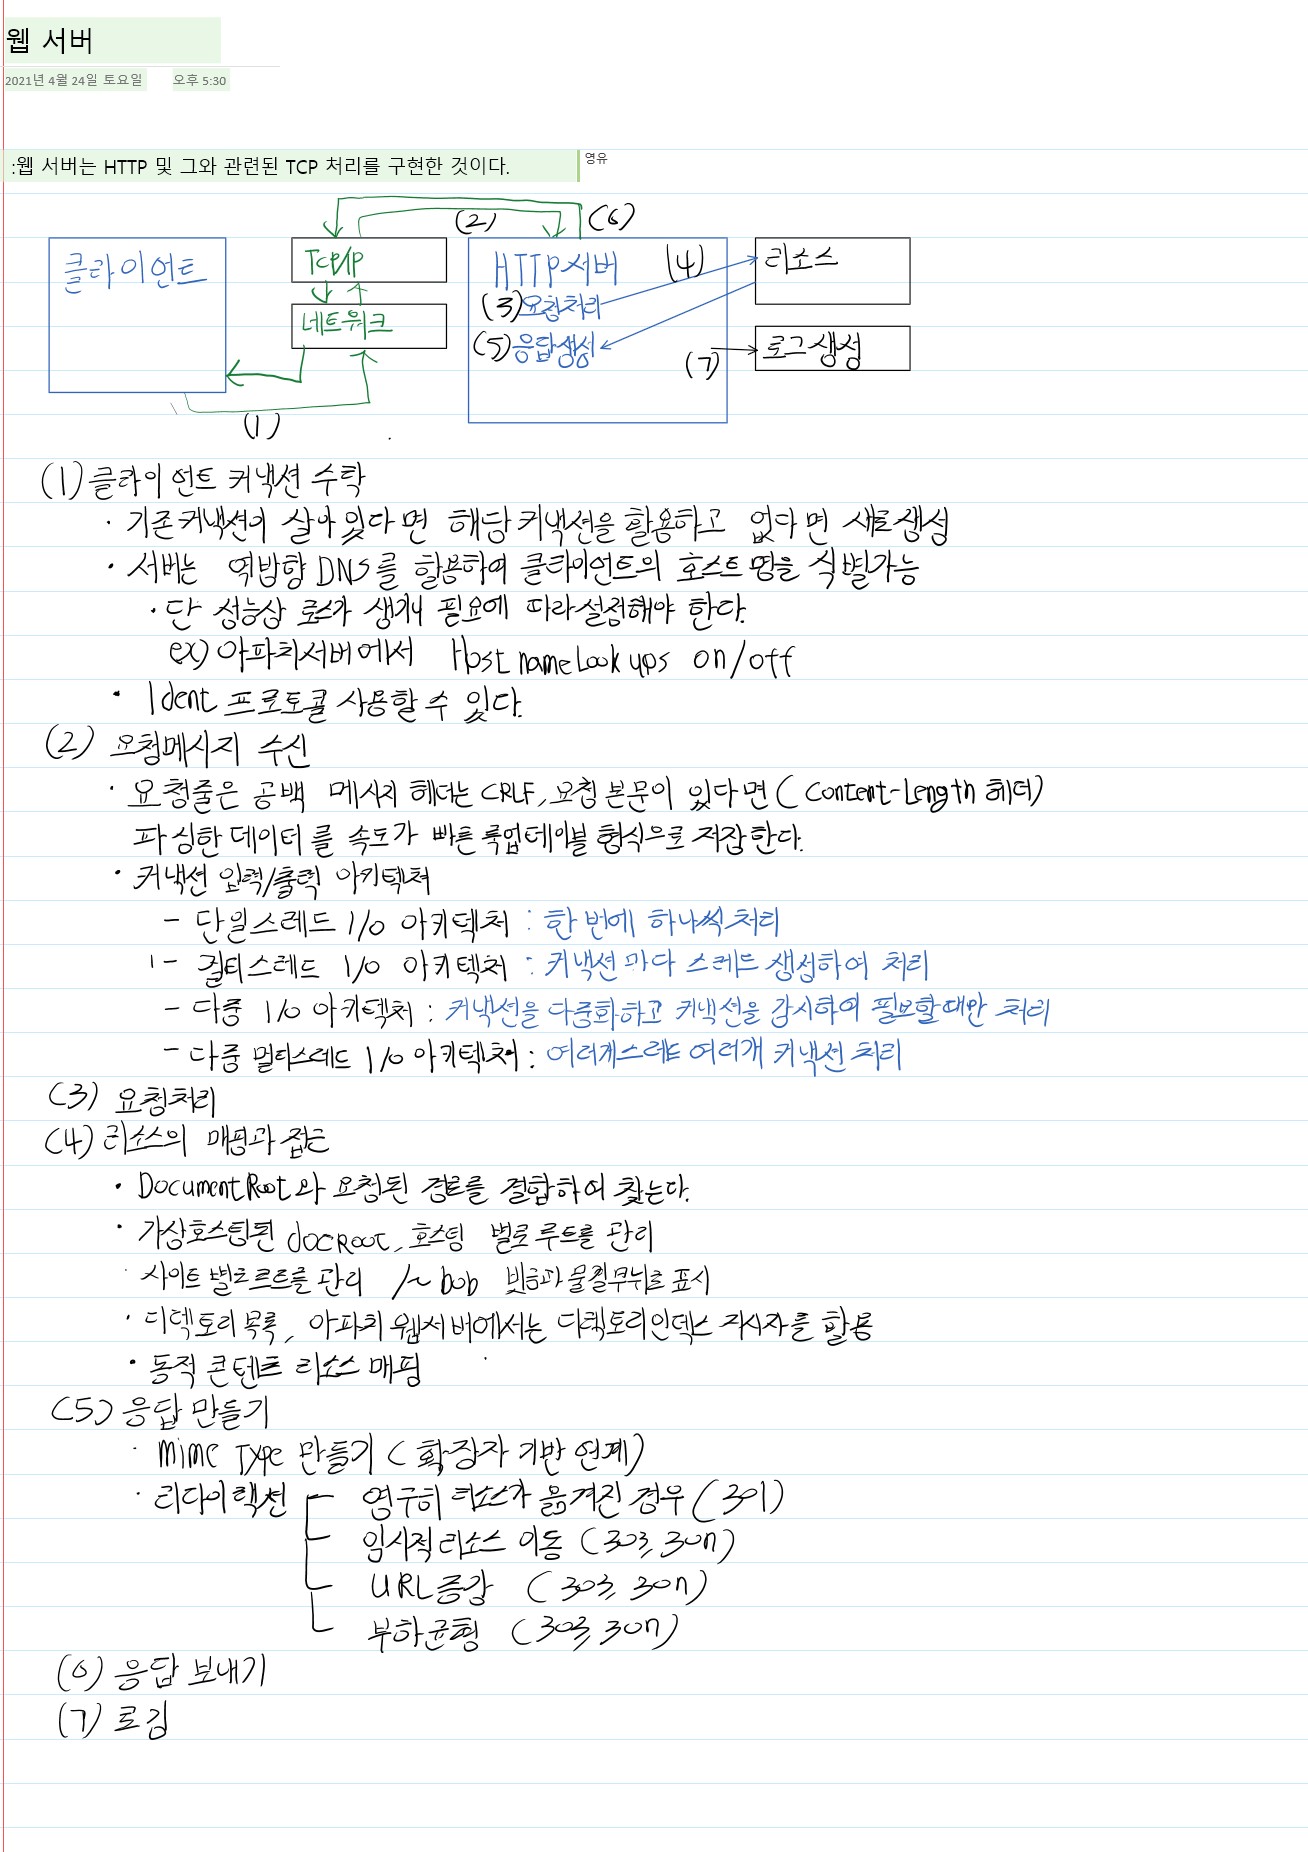 웹 서버
2021년 4월 24일 토요일 오후 5:30
:웹 서버는 HTTP 및 그와 관련된 TCP 처리를 구현한 것이다.
영유
(2) (6)
클라이언트 TCP/IP HTTP서버 (4) 리소스
(3) 요청처리
네트워크
(5) 응답생성 (7) 로그생성
(1)
(1) 클라이언트 커낵션 수락
· 기존커낵션이 살아있다면 해당커낵션을 활용하고 없다면 새로생성
· 서버는 역방향 DNS를 활용하여 클라이언트의 호스트명을 식별가능
· 단 성능상 로스가 생겨 필요에 따라설정해야 한다.
ex) 아파치서버에서 HostnameLookups on/off
· Ident 프로토콜 사용할 수 있다.
(2) 요청메시지 수신
· 요청줄은 공백 메시지 헤더는 CRLF, 요청 본문이 있다면 (Content-Length 헤더)
파싱한 데이터를 속도가 빠른 룩업테이블 형식으로 저장한다.
· 커낵션 입력/출력 아키텍쳐
- 단일스레드 I/O 아키텍처 : 한 번에 하나씩 처리
- 멀티스레드 I/O 아키텍처 : 커낵션 마다 스레드 생성하여 처리
- 다중 I/O 아키텍처 : 커낵션을 다중화하고 커낵션을 감시하여 필요할때만 처리
- 다중 멀티스레드 I/O 아키텍처 : 여러개스레드 여러개 커낵션 처리
(3) 요청처리
(4) 리소스의 매핑과 접근
· DocumentRoot와 요청된 경로를 결합하여 찾는다.
· 가상호스팅된 docRoot, 호스팅 별로 루트를 관리
· 사이트 별로 루트를 관리 /~bob 빗금과 물결무늬로 표시
· 디렉토리 목록, 아파치 웹서버에서는 디렉토리인덱스 지시자를 활용
· 동적 콘텐트 리소스 매핑
(5) 응답 만들기
· mime Type 만들기 (확장자 기반 연계)
· 리다이렉션 영구히 리소스가 옮겨진 경우 (301)
임시적 리소스 이동 (303, 307)
URL증강 (303, 307)
부하균형 (303, 307)
(6) 응답 보내기
(7) 로깅